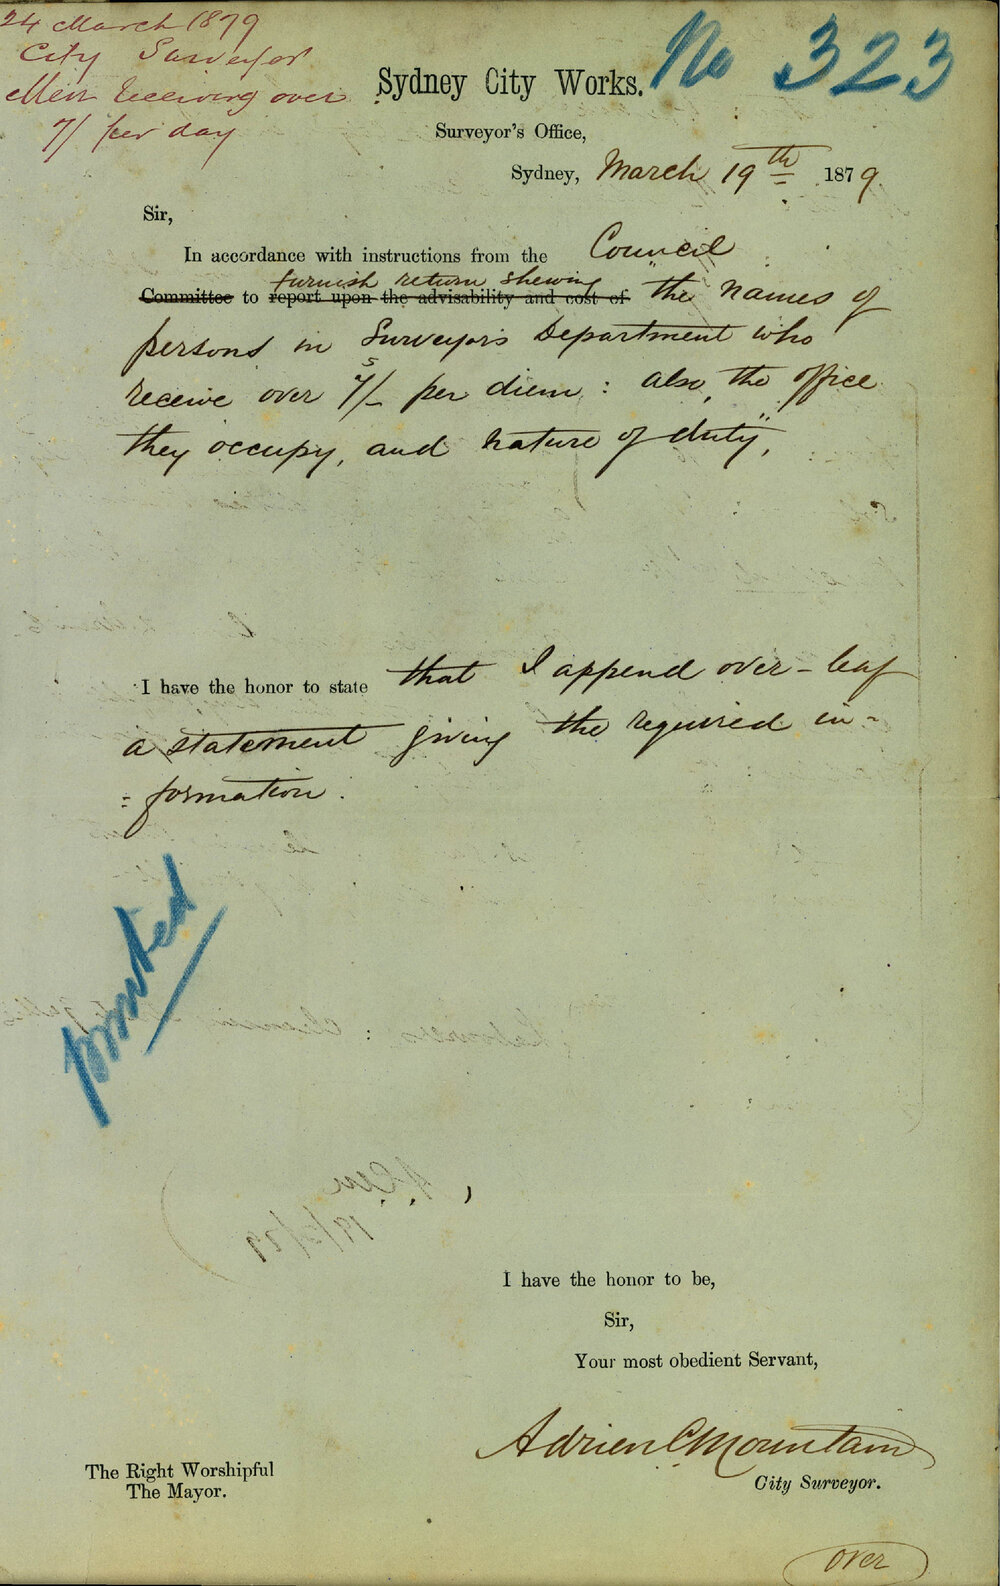 24 March 1879
City Surveyor
Men receiving over
7/ per day
No 323
Sydney City Works.
Surveyor's Office,
Sydney, March 19th 1879.
Sir,
In accordance with instructions from the Council
furnish return shewing
Committee to report upon the advisability and cost of "the names of
persons in Surveyor's Department who
receive over 7s/- per diem: also, the office
they occupy, and nature of duty",
I have the honor to state that I append over-leaf
a statement giving the required in-
=formation.
printed
19/3/79
I have the honor to be,
Sir,
Your most obedient Servant,
Adrien C Mountain
City Surveyor.
The Right Worshipful
The Mayor.
over